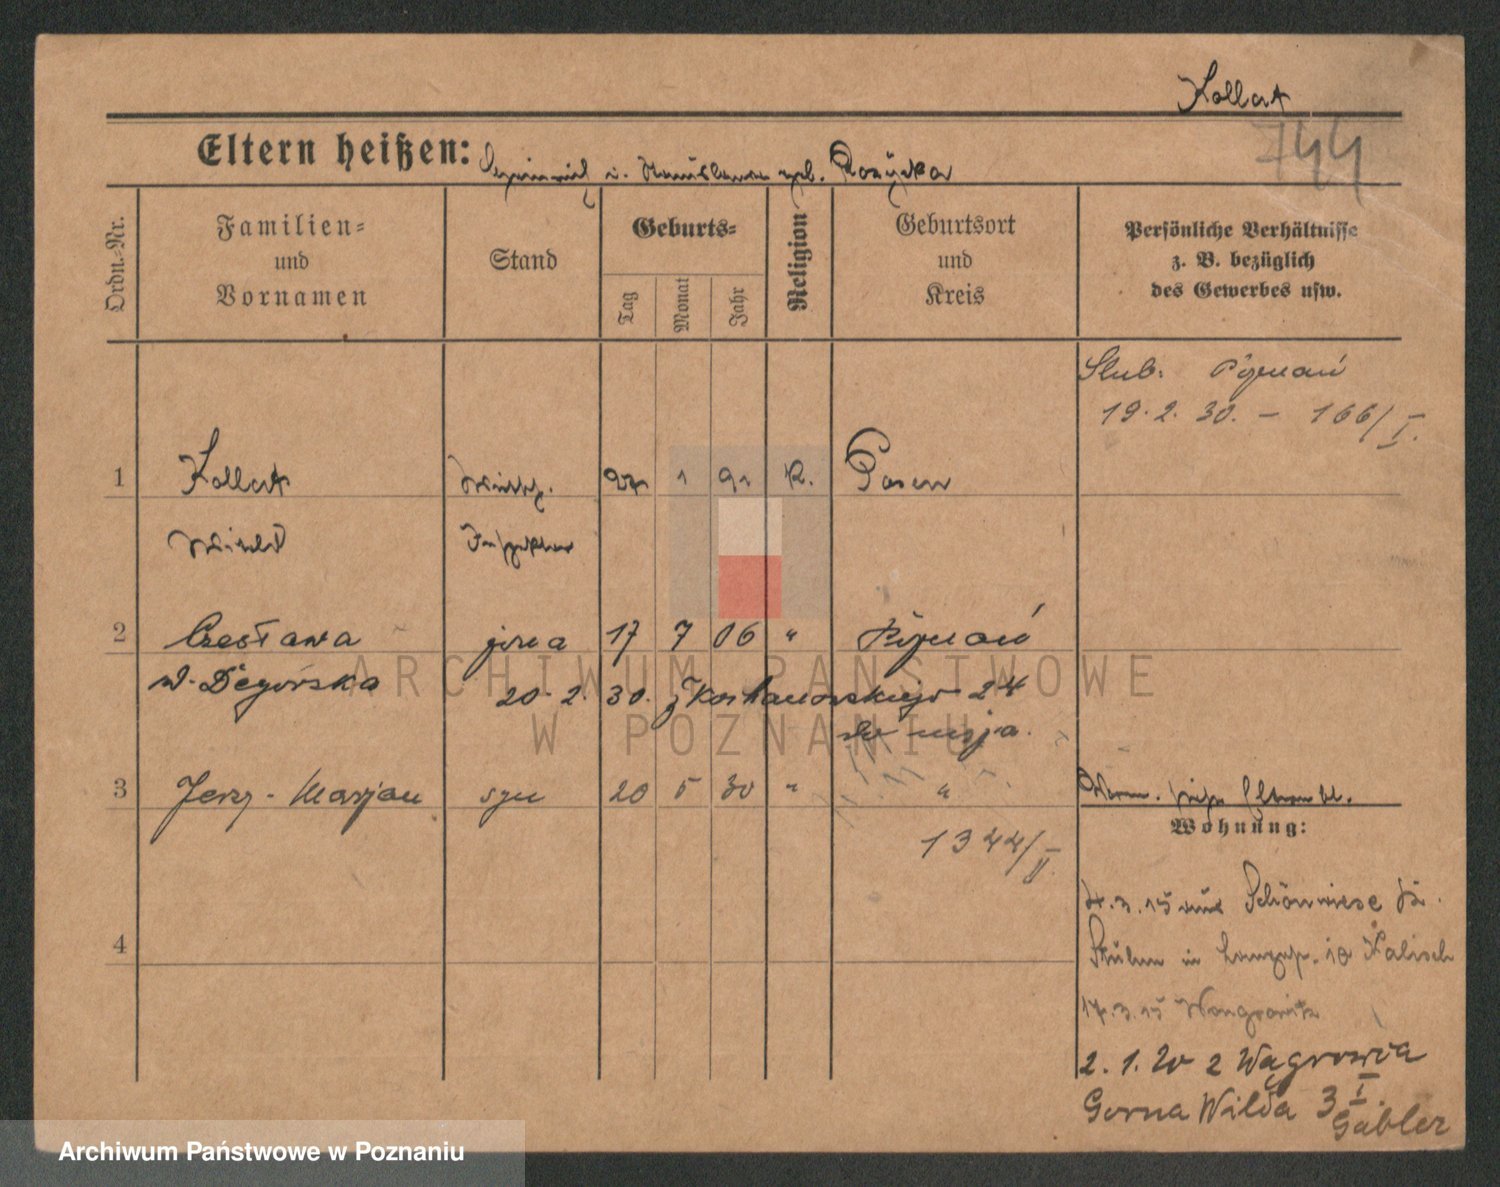 Kollat
744
Eltern heißen: Heinrich u. Stanislawa geb. Rozycka
Ordn.-Nr.
Familien-
und
Vornamen
Stand
Geburts-
Tag
Monat
Jahr
Religion
Geburtsort
und
Kreis
Persönliche Verhältnisse
z. B. bezüglich
des Gewerbes usw.
Slub: Poznań
19.2.30. – 166/I.
1 Kollat 1 91 K. Posen
Witold Inspektor
2 Czesława żona 17 7 06 " Poznań
Degórska 20 2. 30. 24
3 Jerzy-Marjan syn 20 5 30 " "
Wohnung:
1344/II.
4.3.15 aus Schönwiese Kr.
Stuhm in 10 Kalisch
17.3.15 Wongrowitz
4
2.1.20 z Wągrowca
Gorna Wilda 3 I.
Gabler
ARCHIWUM PAŃSTWOWE
W POZNANIU
Archiwum Państwowe w Poznaniu